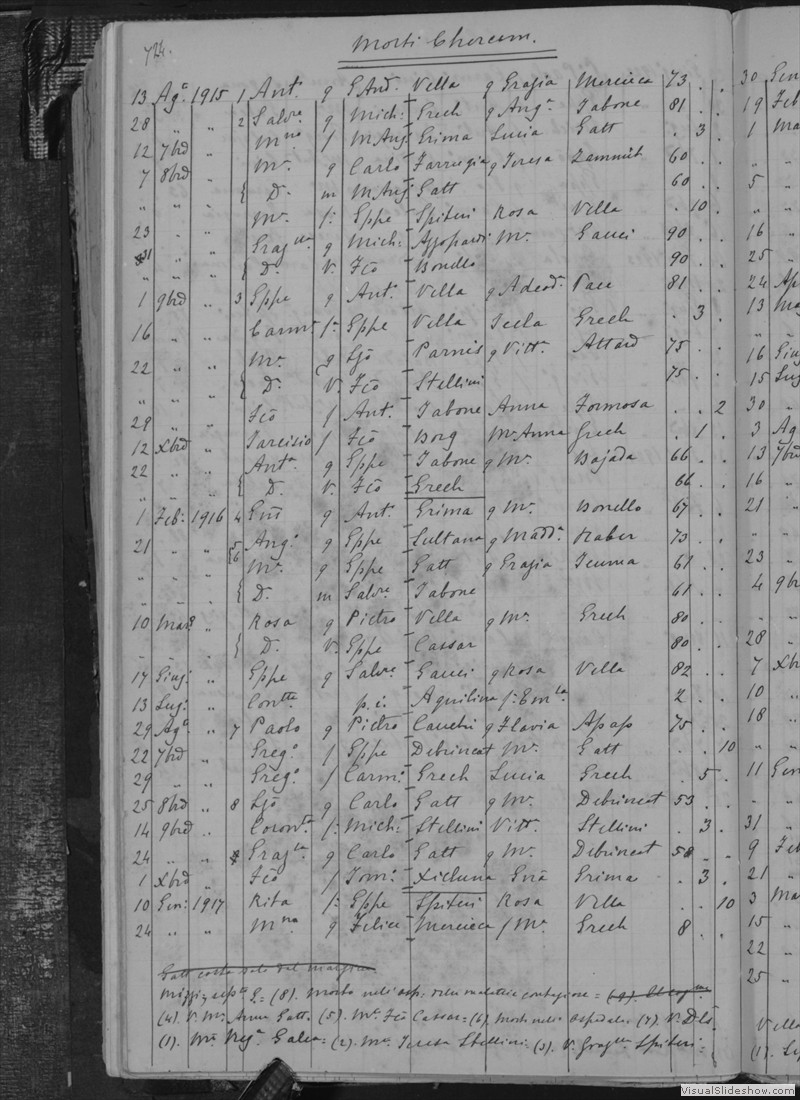 724. Morti Chercem.
13 Ag.º 1915 1 Ant.º q GAnd. Vella q Grazia Mercieca 73 . .
28 " " 2 Salv.re q Mich: Grech q Ang.ª Tabone 81 . .
12 7brè " M.na / MAng Grima Lucia Gatt . 3 .
7 8brè " M.ª q Carlo Farrugia q Teresa Zammit 60 . .
" " " { D.ª m MAng Gatt 60 . .
" " " M.ª f: Gppe Spiteri Rosa Vella . 10 .
23 " " Graz.lla q Mich: Azzopardi M.ª Gauci 90 . .
31 " " { D.ª V. Fcõ Bonello 90 . .
1 9brè " 3 Gppe q Ant.º Vella q Adeod.ª Pace 81 . .
16 " " Carm.ª f: Gppe Vella Tecla Grech . 3 .
22 " " M.ª q Ljõ Parnis q Vitt.ª Attard 75 . .
" " " { D.ª V. Fcõ Stellini 75 . .
29 " " Fcõ / Ant.º Tabone Anna Formosa . . 2
12 Xbrè " Tarcisio / Fcõ Borg M.Anna Grech . 1 .
22 " " Ant.ª q Gppe Tabone q M.ª Bajada 66 . .
" " " { D.ª V. Fcõ Grech 66 . .
1 Feb: 1916 4 q Ant.º Grima q M.ª Bonello 67 . .
21 " " 5 Ang.º q Gppe Sultana q Madd.ª Raber 73 . .
" " " 6 M.ª q Gppe Gatt q Grazia Tcuma 61 . .
" " " { D.ª m Salv.re Tabone 61 . .
10 Mar: " Rosa q Pietro Vella q M.ª Grech 80 . .
" " " { D.ª V. Gppe Cassar 80 . .
17 Giug: " Gppe q Salv.re Gauci q Rosa Vella 82 . .
13 Lug: " Conc.tta p. i. Aquilina f: Em.la 2 . .
29 Ag.º " 7 Paolo q Pietro Cauchi q Flavia Apap 75 . .
22 7brè " Greg.º / Gppe Debrincat M.ª Gatt . . 10
29 " " Greg.º / Carm: Grech Lucia Grech . 5 .
25 8brè " 8 Ljõ q Carlo Gatt q M.ª Debrincat 53 . .
14 9brè " Coron.ta f: Mich: Stellini Vitt.ª Stellini . 3 .
24 " " Graz.lla q Carlo Gatt q M.ª Debrincat 58 . .
1 Xbrè " Fcõ / Tom: Xicluna Grima . 3 .
10 Gen: 1917 Rita f: Gppe Spiteri Rosa Vella . . 10
24 " " M.na q Felice Mercieca / M.ª Grech 8 . .
(8). Morto nell'asp: malattie contagiose =
(4). V. M.ª Anna Gatt. (5). M.ª Fcõ Cassar = (6). Morto nello Ospedale. (7). V.
(1). M.ª Reg.ª Galea = (2). M.ª Teresa Stellini. (3). V. Graz.lla Spiteri.
30 Gen
19 Feb
1 Ma
5 "
16 "
25 "
24 Ap
13 Mag
16 Giu
15 Lug
30 "
3 Ag
13 7brè
16 "
21 "
23 "
4 9brè
28 "
7 Xbr
10 "
18 "
11 Gen
31 "
9 Feb
21 "
3 Ma
15 "
22 "
25 "
Vella
VisualSlideshow.com